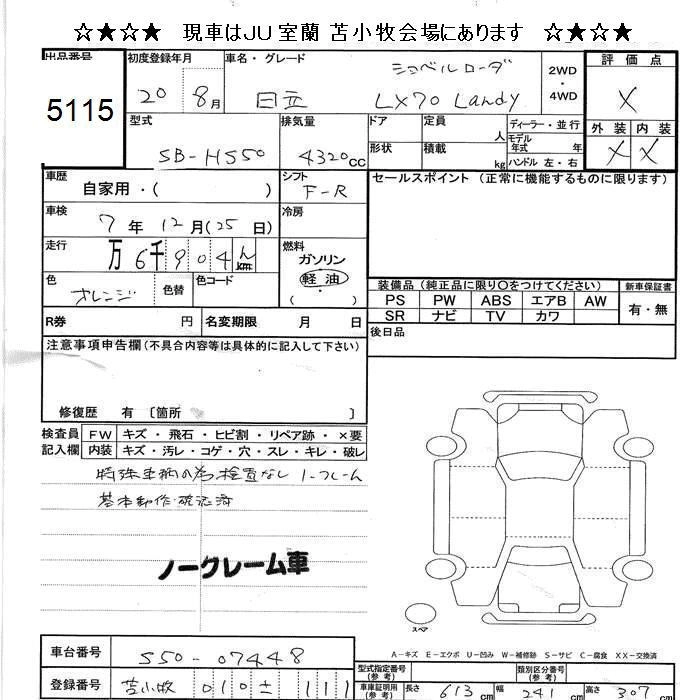 ☆★☆★ 現車はJU室蘭 苫小牧会場にあります ☆★☆★
出品番号
5115
初度登録年月
20 8月
車名・グレード
日立
ショベルローダ
LX70 Landy
2WD
・
4WD
評価点
X
外装 内装
X X
型式
SB-HS50
排気量
4320cc
ドア
形状
定員 人
積載 kg
ディーラー・並行
モデル年式 年
ハンドル 左・右
車歴
自家用・( )
シフト
F-R
セールスポイント (正常に機能するものに限ります)
車検
7年12月(25日)
冷房
走行
万6千904km
燃料
ガソリン
軽油
( )
色
オレンジ
色替
色コード
装備品(純正品に限り〇をつけてください)
新車保証書
PS PW ABS エアB AW
SR ナビ TV カワ
有・無
R券 円
名変期限 月 日
後日品
注意事項申告欄(不具合内容等は具体的に記入して下さい)
修復歴 有 〔箇所 〕
検査員
記入欄
FW キズ・飛石・ヒビ割・リペア跡・×要
内装 キズ・汚レ・コゲ・穴・スレ・キレ・破レ
特殊車輌の為検査なし ノークレーム
基本動作確認済
ノークレーム車
スペア
A-キズ E-エクボ U-凹み W-補修跡 S-サビ C-腐食 XX-交換済
車台番号
S50-07448
登録番号
苫小牧 010 111
型式指定番号
(参考)
類別区分番号
(参考)
車庫証明用
(参考)
長さ 613cm 幅 241cm 高さ 307cm